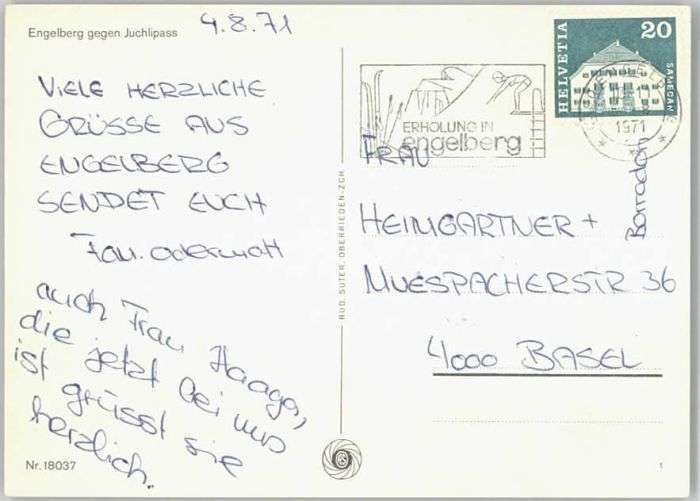 Engelberg gegen Juchlipass
4.8.71
VIELE HERZLICHE
GRÜSSE AUS
ENGELBERG
SENDET EUCH
Fam. odermatt
auch Frau Haaga,
die jetzt bei uns
ist grüsst sie
herzlich.
Nr. 18037
RUD. SUTER, OBERRIEDEN-ZCH.
HELVETIA
20
SAMEDAN
ERHOLUNG IN
engelberg
1971
FRAU
HEIMGARTNER +
Borradori
MUESPACHERSTR 36
4000 BASEL
1